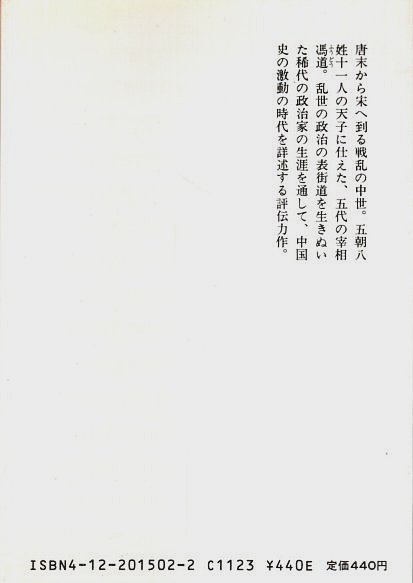 唐末から宋へ到る戦乱の中世。五朝八
姓十一人の天子に仕えた、五代の宰相
馮道。乱世の政治の表街道を生きぬい
た稀代の政治家の生涯を通して、中国
史の激動の時代を詳述する評伝力作。
ふうどう
ISBN4-12-201502-2 C1123 ¥440E 定価440円